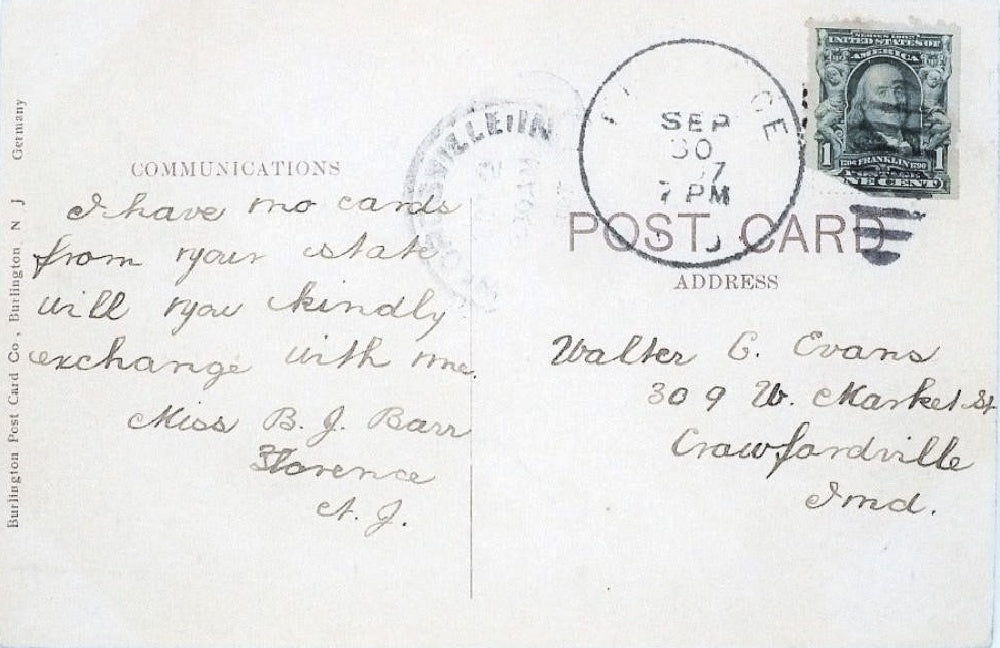 COMMUNICATIONS
I have no cards
from your state
will you kindly
exchange with me.
Miss B. J. Barr
Florence
N. J.
Burlington Post Card Co., Burlington N J Germany
SEP
30
07
7 PM
SERIES 1902
UNITED STATES OF
AMERICA
1706 FRANKLIN 1790
1 1
ONE CENT
POST CARD
ADDRESS
Walter C. Evans
309 W. Market St
Crawfordville
Ind.